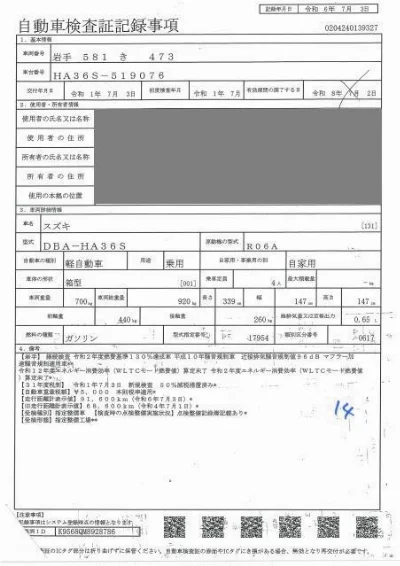 記録年月日 令和 6年 7月 3日
自動車検査証記録事項
0204240139327
1．基本情報
車両番号 岩手 581 き 473
車台番号 HA36S-519076
交付年月日 令和 1年 7月 3日 初度検査年月 令和 1年 7月 有効期間の満了する日 令和 8年 7月 2日
2．使用者・所有者情報
使用者の氏名又は名称
使用者の住所
所有者の氏名又は名称
所有者の住所
使用の本拠の位置
3．車両詳細情報
車名 スズキ [131]
型式 DBA-HA36S 原動機の型式 R06A
自動車の種別 軽自動車 用途 乗用 自家用・事業用の別 自家用
車体の形状 箱型 [001] 乗車定員 4人 最大積載量 －kg
車両重量 700kg 車両総重量 920kg 長さ 339cm 幅 147cm 高さ 147cm
前軸重 440kg 後軸重 260kg 総排気量又は定格出力 0.65L
燃料の種類 ガソリン 型式指定番号 17954 類別区分番号 0617
4．備考
【岩手】 継続検査 令和２年度燃費基準１３０％達成車 平成１０年騒音規制車 近接排気騒音規制値９６ｄＢ マフラー加
速騒音規制適用車
令和１２年度エネルギー消費効率（ＷＬＴＣモード燃費値）算定未了 令和２年度エネルギー消費効率（ＷＬＴＣモード燃費値
）算定未了
【３１年度税制】 令和１年７月３日 新規検査
【自動車重量税額】 ¥５，０００ 本則税率適用
【走行距離計表示値】 ９１，６００ｋｍ（令和６年７月３日）
【旧走行距離計表示値】 ６８，６００ｋｍ（令和４年７月１日）
【受検種別】 指定整備車 【検査時の点検整備実施状況】 点検整備記録簿記載あり
【受検形態】 指定整備工場
14
【注意事項】
K9568QM8928786